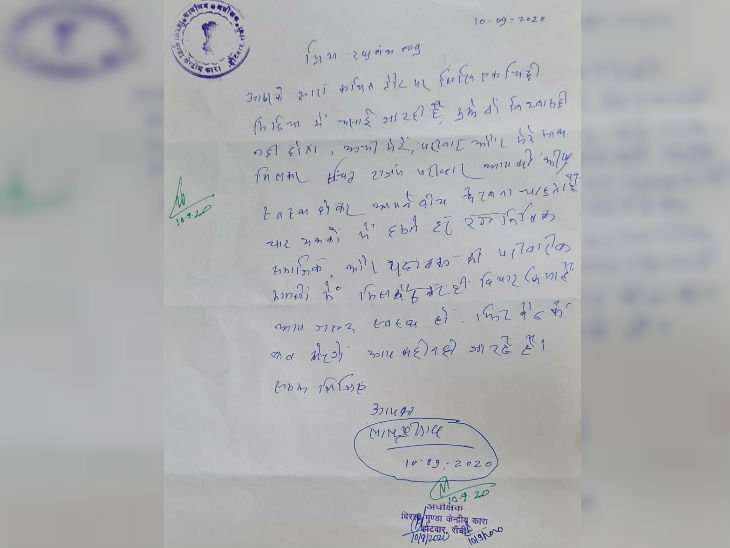 10-09-2020
प्रिय रघुवंश बाबु
आपके द्वारा कथित तौर पर लिखी एक चिट्ठी
मिडिया में चलाई जा रही है, मुझे तो विश्वास ही
नही होता, अभी मेरे, परीवार और मेरे साथ
मिलकर राजद परीवार आपको शीघ्र
स्वस्थ होकर अपने बीच देखना चाहता है
चार दशकों में हमने हर राजनितिक
समाजिक, और यहां तक की परीवारीक
मामलों में मिल बैठकर ही विचार किया है
आप जल्द स्वस्थ हों. फिर बैठ के
बात करेंगें आप कहीं नही जा रहे हैं।
समझ लिजिए
आपका
लालू प्रसाद
10-09-2020
10.9.20
10.9.20
अधीक्षक
बिरसा मुण्डा केन्द्रीय कारा
होटवार, राँची
10/9/2020 10/9/2020